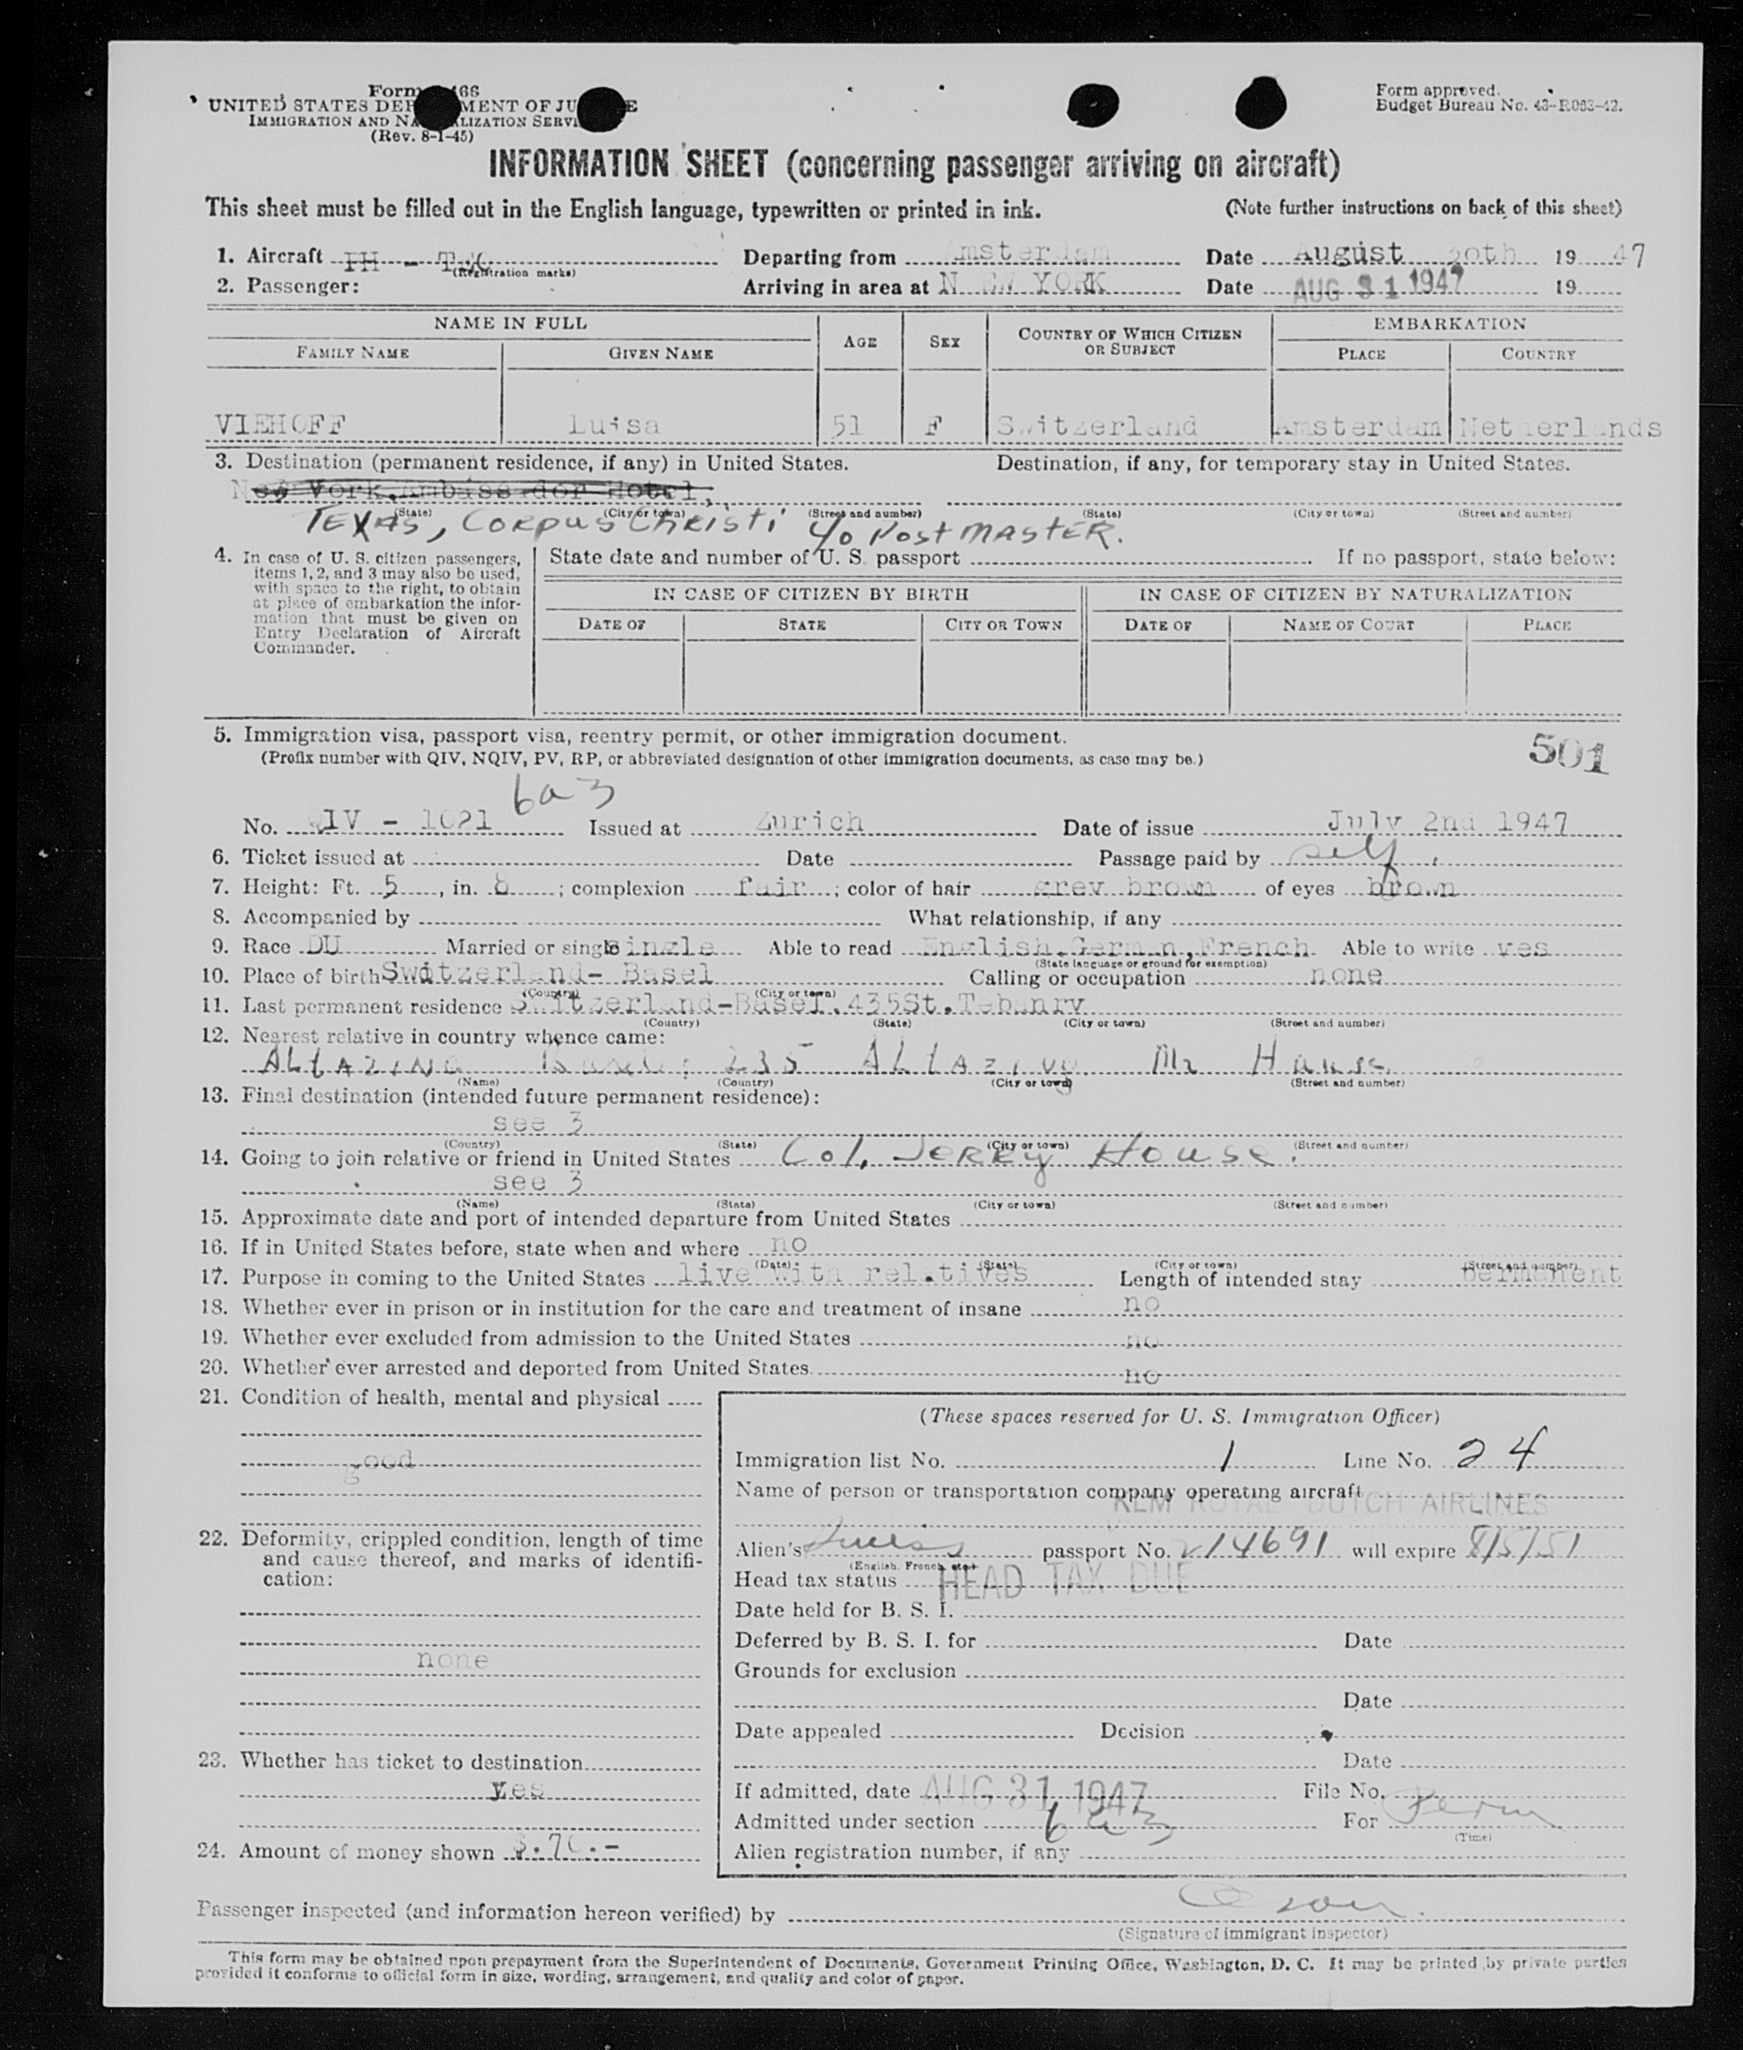 Form 466
UNITED STATES DEPARTMENT OF JUSTICE
IMMIGRATION AND NATURALIZATION SERVICE
(Rev. 8-1-45)
Form approved.
Budget Bureau No. 43-R083-42.
INFORMATION SHEET (concerning passenger arriving on aircraft)
This sheet must be filled out in the English language, typewritten or printed in ink. (Note further instructions on back of this sheet)
1. Aircraft PH - (Registration marks) Departing from Amsterdam Date August 30th 1947
2. Passenger: Arriving in area at NEW YORK Date AUG 31 1947 19
NAME IN FULL AGE SEX COUNTRY OF WHICH CITIZEN OR SUBJECT EMBARKATION
FAMILY NAME GIVEN NAME PLACE COUNTRY
VIEHOFF Luisa 51 F Switzerland Amsterdam Netherlands
3. Destination (permanent residence, if any) in United States. Destination, if any, for temporary stay in United States.
New York, Ambassador Hotel,
(State) (City or town) (Street and number) (State) (City or town) (Street and number)
TEXAS, CORPUS Christi c/o POSTMASTER.
4. In case of U. S. citizen passengers, items 1, 2, and 3 may also be used, with space to the right, to obtain at place of embarkation the information that must be given on Entry Declaration of Aircraft Commander.
State date and number of U. S. passport If no passport, state below:
IN CASE OF CITIZEN BY BIRTH IN CASE OF CITIZEN BY NATURALIZATION
DATE OF STATE CITY OR TOWN DATE OF NAME OF COURT PLACE
5. Immigration visa, passport visa, reentry permit, or other immigration document.
(Prefix number with QIV, NQIV, PV, RP, or abbreviated designation of other immigration documents, as case may be.)
501
6a3
No. QIV - 1021 Issued at Zurich Date of issue July 2nd 1947
6. Ticket issued at Date Passage paid by self
7. Height: Ft. 5, in. 8; complexion fair; color of hair grey brown of eyes brown
8. Accompanied by What relationship, if any
9. Race DU Married or single single Able to read English, German, French Able to write yes
(State language or ground for exemption)
10. Place of birth Switzerland- Basel Calling or occupation none
(Country) (City or town)
11. Last permanent residence Switzerland-Basel. 435St.
(Country) (State) (City or town) (Street and number)
12. Nearest relative in country whence came:
235 Mr
(Name) (Country) (City or town) (Street and number)
13. Final destination (intended future permanent residence):
see 3
(Country) (State) (City or town) (Street and number)
14. Going to join relative or friend in United States Col. JERRY HOUSE.
see 3
(Name) (State) (City or town) (Street and number)
15. Approximate date and port of intended departure from United States
16. If in United States before, state when and where no
(Date) (State) (City or town) (Street and number)
17. Purpose in coming to the United States live with relatives Length of intended stay permanent
18. Whether ever in prison or in institution for the care and treatment of insane no
19. Whether ever excluded from admission to the United States no
20. Whether ever arrested and deported from United States no
21. Condition of health, mental and physical
good
22. Deformity, crippled condition, length of time and cause thereof, and marks of identification:
none
23. Whether has ticket to destination
yes
24. Amount of money shown $.70.-
(These spaces reserved for U. S. Immigration Officer)
Immigration list No. 1 Line No. 24
Name of person or transportation company operating aircraft
KLM ROYAL DUTCH AIRLINES
Alien's Swiss passport No. 214691 will expire 8/5/51
(English, French, etc.)
Head tax status HEAD TAX DUE
Date held for B. S. I.
Deferred by B. S. I. for Date
Grounds for exclusion
Date
Date appealed Decision
Date
If admitted, date AUG 31 1947 File No.
Admitted under section 6a3 For Perm
(Time)
Alien registration number, if any
Passenger inspected (and information hereon verified) by
(Signature of immigrant inspector)
This form may be obtained upon prepayment from the Superintendent of Documents, Government Printing Office, Washington, D. C. It may be printed by private parties
provided it conforms to official form in size, wording, arrangement, and quality and color of paper.